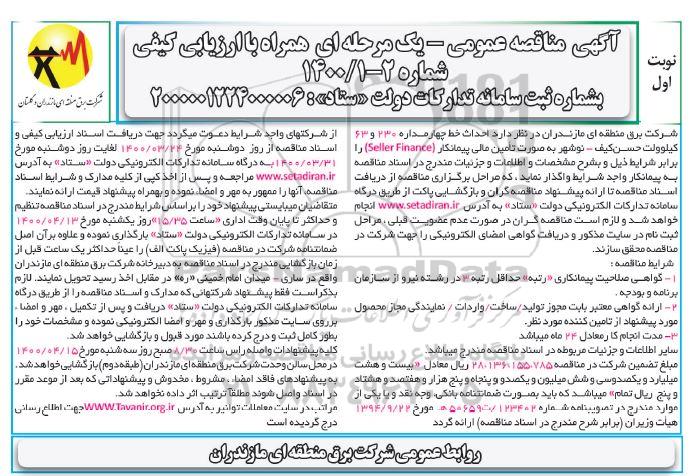 آگهی مناقصه عمومی – یک مرحله ای همراه با ارزیابی کیفی
شماره ۲-۱۴۰۰/۱
بشماره ثبت سامانه تدارکات دولت «ستاد»: ۲۰۰۰۰۰۱۲۲۴۰۰۰۰۰۶
نوبت
اول
شرکت برق منطقه ای مازندران و گلستان
شرکت برق منطقه ای مازندران در نظر دارد احداث خط چهارمداره ۲۳۰ و ۶۳
کیلوولت حسن‌کیف - نوشهر به صورت تأمین مالی پیمانکار (Seller Finance) را
برابر شرایط ذیل و بشرح مشخصات و اطلاعات و جزئیات مندرج در اسناد مناقصه
به پیمانکار واجد شرایط واگذار نماید، که مراحل برگزاری مناقصه از دریافت
اسناد مناقصه تا ارائه پیشنهاد مناقصه گران و بازگشایی پاکت از طریق درگاه
سامانه تدارکات الکترونیکی دولت «ستاد» به آدرس www.setadiran.ir انجام
خواهد شد و لازم است مناقصه گران در صورت عدم عضویت قبلی، مراحل
ثبت نام در سایت مذکور و دریافت گواهی امضای الکترونیکی را جهت شرکت در
مناقصه محقق سازند.
شرایط مناقصه :
۱- گواهی صلاحیت پیمانکاری «رتبه» حداقل رتبه ۲ در رشته نیرو از سازمان
برنامه و بودجه .
۲- ارائه گواهی معتبر بابت مجوز تولید/ساخت/واردات / نمایندگی مجاز محصول
مورد پیشنهاد از تامین کننده مورد نظر.
۳- مدت انجام کار معادل ۲۴ ماه میباشد
سایر اطلاعات و جزئیات مربوطه در اسناد مناقصه مندرج میباشد
مبلغ تضمین شرکت در مناقصه ۲۸،۱۳۶،۱۵۵،۷۸۵ ریال معادل « بیست و هشت
میلیارد و یکصدوسی و شش میلیون و یکصدو و پنجاه و پنج هزار و هفتصدو هشتاد
و پنج ریال تمام» میباشد که باید بصورت ضمانتنامه بانکی، وجه نقد و یا یکی از
موارد مندرج در تصویبنامه شماره ۱۲۳۴۰۲/ت۵۰۶۵۹هـ مورخ ۱۳۹۴/۹/۲۲
هیأت وزیران (برابر شرح مندرج در اسناد مناقصه) ارائه گردد
از شرکتهای واجد شرایط دعوت میگردد جهت دریافت اسناد ارزیابی کیفی و
اسناد مناقصه از روز دوشنبه مورخ ۱۴۰۰/۰۳/۲۴ لغایت روز دوشنبه مورخ
۱۴۰۰/۰۳/۳۱ به درگاه سامانه تدارکات الکترونیکی دولت «ستاد» به آدرس
www.setadiran.ir مراجعه و پس از اخذ کپی از کلیه مدارک و شرایط اسناد
مناقصه آنها را ممهور به مهر و امضا، نموده و بهمراه پیشنهاد قیمت ارائه نمایند.
متقاضیان میبایستی پیشنهاد خود را براساس شرایط مندرج در اسناد مناقصه تنظیم
و حداکثر تا پایان وقت اداری «ساعت ۱۵/۳۵» روز یکشنبه مورخ ۱۴۰۰/۰۴/۱۳
در سامانه تدارکات الکترونیکی دولت «ستاد» بارگذاری نموده و علاوه برآن اصل
ضمانتنامه شرکت در مناقصه (فیزیک پاکت الف) را عیناً حداکثر یک ساعت قبل از
زمان بازگشایی مندرج در اسناد مناقصه به دبیرخانه شرکت برق منطقه ای مازندران
واقع در ساری - میدان امام خمینی «ره» در مقابل اخذ رسید تحویل نمایند. لازم
بذکراست فقط پیشنهاد شرکتهایی که مدارک و اسناد مناقصه را از طریق درگاه
سامانه تدارکات الکترونیکی دولت «ستاد» دریافت و پس از تکمیل، مهر و امضا،
برروی سایت مذکور بارگذاری و مهر و امضا الکترونیکی نموده و مشخصات خود را
بطور کامل ثبت و درج کرده باشند مورد قبول و بازگشایی خواهد شد.
کلیه پیشنهادات واصله راس ساعت ۸/۳۰ صبح روز سه شنبه مورخ ۱۴۰۰/۰۴/۱۵
در محل سالن وحدت شرکت برق منطقه ای مازندران (طبقه دوم) بازگشایی خواهد شد.
به پیشنهادهای فاقد امضا، مشروط، مخدوش و پیشنهاداتی که بعد از موعد مقرر
در اسناد واصل شوند مطلقاً ترتیب اثر داده نخواهد شد.
مراتب در سایت معاملات توانیر به آدرس WWW.Tavanir.org.ir جهت اطلاع رسانی
درج گردیده است
روابط عمومی شرکت برق منطقه ای مازندران